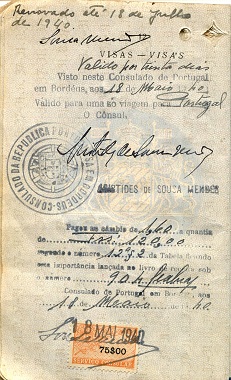 Renovado até 18 de julho
de 1940.
Sousa Mendes
VISAS – VISA'S
Valido por trinta dias
Visto neste Consulado de Portugal
em Bordéus, aos 18 de Maio 40
Valido para uma só viagem para Portugal
O Cônsul,
CONSULADO DA REPUBLICA PORTUGUESA EM BORDEUS
Aristides de Sousa Mendes
ARISTIDES DE SOUSA MENDES
Pagou ao câmbio de a quantia
de
segundo o número da Tabela devendo
esta importância lançada no livro de receita sob
o número
Consulado de Portugal em Bordéus, aos
18 de Maio de 40
18 MAI 1940
75$00